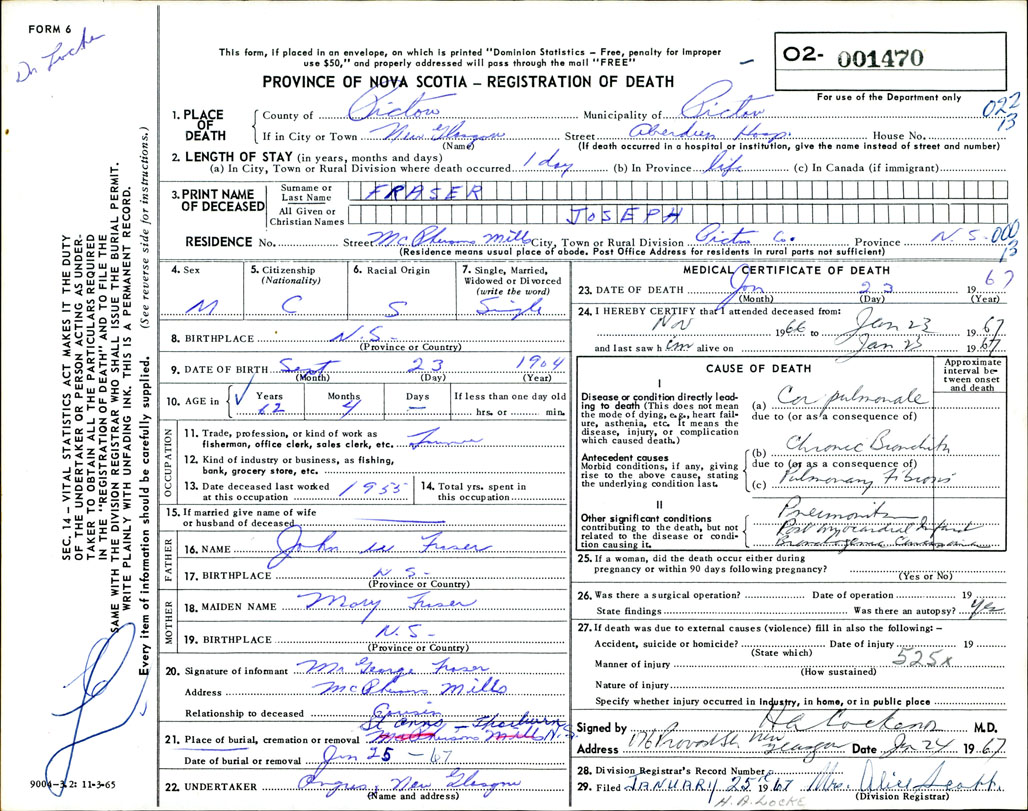 FORM 6
Dr Locke
This form, if placed in an envelope, on which is printed "Dominion Statistics – Free, penalty for improper
use $50," and properly addressed will pass through the mail "FREE"
PROVINCE OF NOVA SCOTIA – REGISTRATION OF DEATH
O2- 001470
For use of the Department only
022
13
1. PLACE OF DEATH County of Pictou Municipality of Pictou
If in City or Town New Glasgow Street Aberdeen Hosp. House No.
(Name) (If death occurred in a hospital or institution, give the name instead of street and number)
2. LENGTH OF STAY (in years, months and days)
(a) In City, Town or Rural Division where death occurred 1 day (b) In Province life (c) In Canada (if immigrant)
3. PRINT NAME OF DECEASED Surname or Last Name FRASER
All Given or Christian Names JOSEPH
RESIDENCE No. Street McPhersons Mills City, Town or Rural Division Pictou Co. Province N.S. 000
13
(Residence means usual place of abode. Post Office Address for residents in rural parts not sufficient)
4. Sex M
5. Citizenship (Nationality) C
6. Racial Origin S
7. Single, Married, Widowed or Divorced (write the word) Single
8. BIRTHPLACE N.S.
(Province or Country)
9. DATE OF BIRTH Sept 23 1904
(Month) (Day) (Year)
10. AGE in Years 62 Months 4 Days – If less than one day old hrs. or min.
OCCUPATION
11. Trade, profession, or kind of work as fisherman, office clerk, sales clerk, etc.
12. Kind of industry or business, as fishing, bank, grocery store, etc.
13. Date deceased last worked at this occupation 1955
14. Total yrs. spent in this occupation
15. If married give name of wife or husband of deceased
FATHER
16. NAME John Fraser
17. BIRTHPLACE N.S.
(Province or Country)
MOTHER
18. MAIDEN NAME Mary Fraser
19. BIRTHPLACE N.S.
(Province or Country)
20. Signature of informant Mr George Fraser
Address McPhersons Mills
Relationship to deceased Cousin
St Anns – Thorburn N.S.
21. Place of burial, cremation or removal
Date of burial or removal Jan 25 - 67
22. UNDERTAKER Angus, New Glasgow
(Name and address)
MEDICAL CERTIFICATE OF DEATH
23. DATE OF DEATH Jan 23 1967
(Month) (Day) (Year)
24. I HEREBY CERTIFY that I attended deceased from:
Nov 1966 to Jan 23 1967
and last saw him alive on Jan 23 1967
CAUSE OF DEATH
Approximate interval between onset and death
I
Disease or condition directly leading to death (This does not mean the mode of dying, e.g., heart failure, asthenia, etc. It means the disease, injury, or complication which caused death.)
(a) Cor pulmonale
due to (or as a consequence of)
Antecedent causes
Morbid conditions, if any, giving rise to the above cause, stating the underlying condition last.
(b) Chronic Bronchitis
due to (or as a consequence of)
(c) Pulmonary Fibrosis
II
Other significant conditions contributing to the death, but not related to the disease or condition causing it.
Pneumonitis
Post myocardial infarct
25. If a woman, did the death occur either during
pregnancy or within 90 days following pregnancy?
(Yes or No)
26. Was there a surgical operation? Date of operation 19
State findings Was there an autopsy? Yes
27. If death was due to external causes (violence) fill in also the following: –
Accident, suicide or homicide? Date of injury 19
(State which)
Manner of injury 525x
(How sustained)
Nature of injury
Specify whether injury occurred in Industry, in home, or in public place
Signed by M.D.
Address 176 Provost St New Glasgow Date Jan 24 1967
28. Division Registrar's Record Number
29. Filed JANUARY 25 1967 Mrs. Alice
(Division Registrar)
H. B. LOCKE
SEC. 14 – VITAL STATISTICS ACT MAKES IT THE DUTY
OF THE UNDERTAKER OR PERSON ACTING AS UNDER-
TAKER TO OBTAIN ALL THE PARTICULARS REQUIRED
IN THE "REGISTRATION OF DEATH" AND TO FILE THE
SAME WITH THE DIVISION REGISTRAR WHO SHALL ISSUE THE BURIAL PERMIT.
WRITE PLAINLY WITH UNFADING INK. THIS IS A PERMANENT RECORD.
Every item of information should be carefully supplied. (See reverse side for instructions.)
9004-3.2: 11-3-65